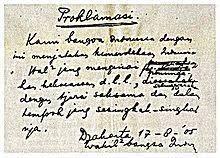 Proklamasi.
Kami bangsa Indonesia dengan
ini menjatakan kemerdekaan Indones
Hal² jang mengenai
kekoeasaan d.l.l.,
dengan tjara saksama dan dalam
tempoh jang sesingkat-singkat
nja.
Djakarta 17 - 8 - '05
Wakil² bangsa Indon